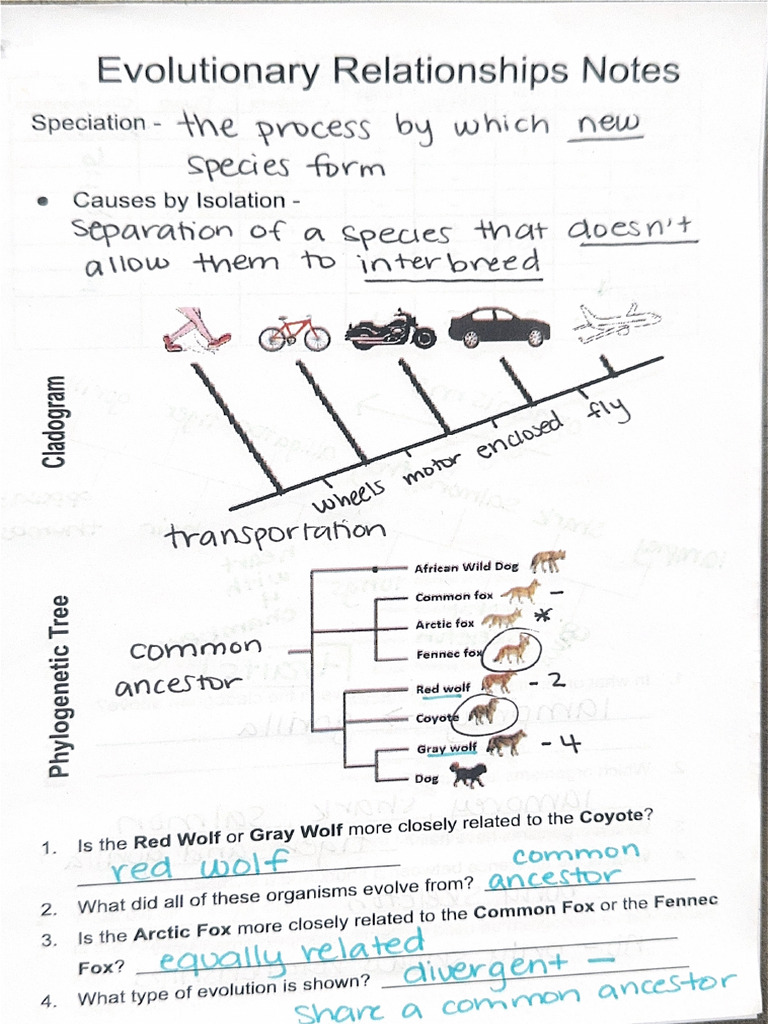 Evolutionary Relationships Notes
Speciation - the process by which new
species form
• Causes by Isolation -
separation of a species that doesn't
allow them to interbreed
Cladogram
wheels motor enclosed fly
transportation
Phylogenetic Tree
common
ancestor
African Wild Dog
Common fox -
Arctic fox *
Fennec fox
Red wolf - 2
Coyote
Gray wolf - 4
Dog
1. Is the Red Wolf or Gray Wolf more closely related to the Coyote?
red wolf
common
2. What did all of these organisms evolve from? ancestor
3. Is the Arctic Fox more closely related to the Common Fox or the Fennec
Fox? equally related
4. What type of evolution is shown? divergent -
share a common ancestor